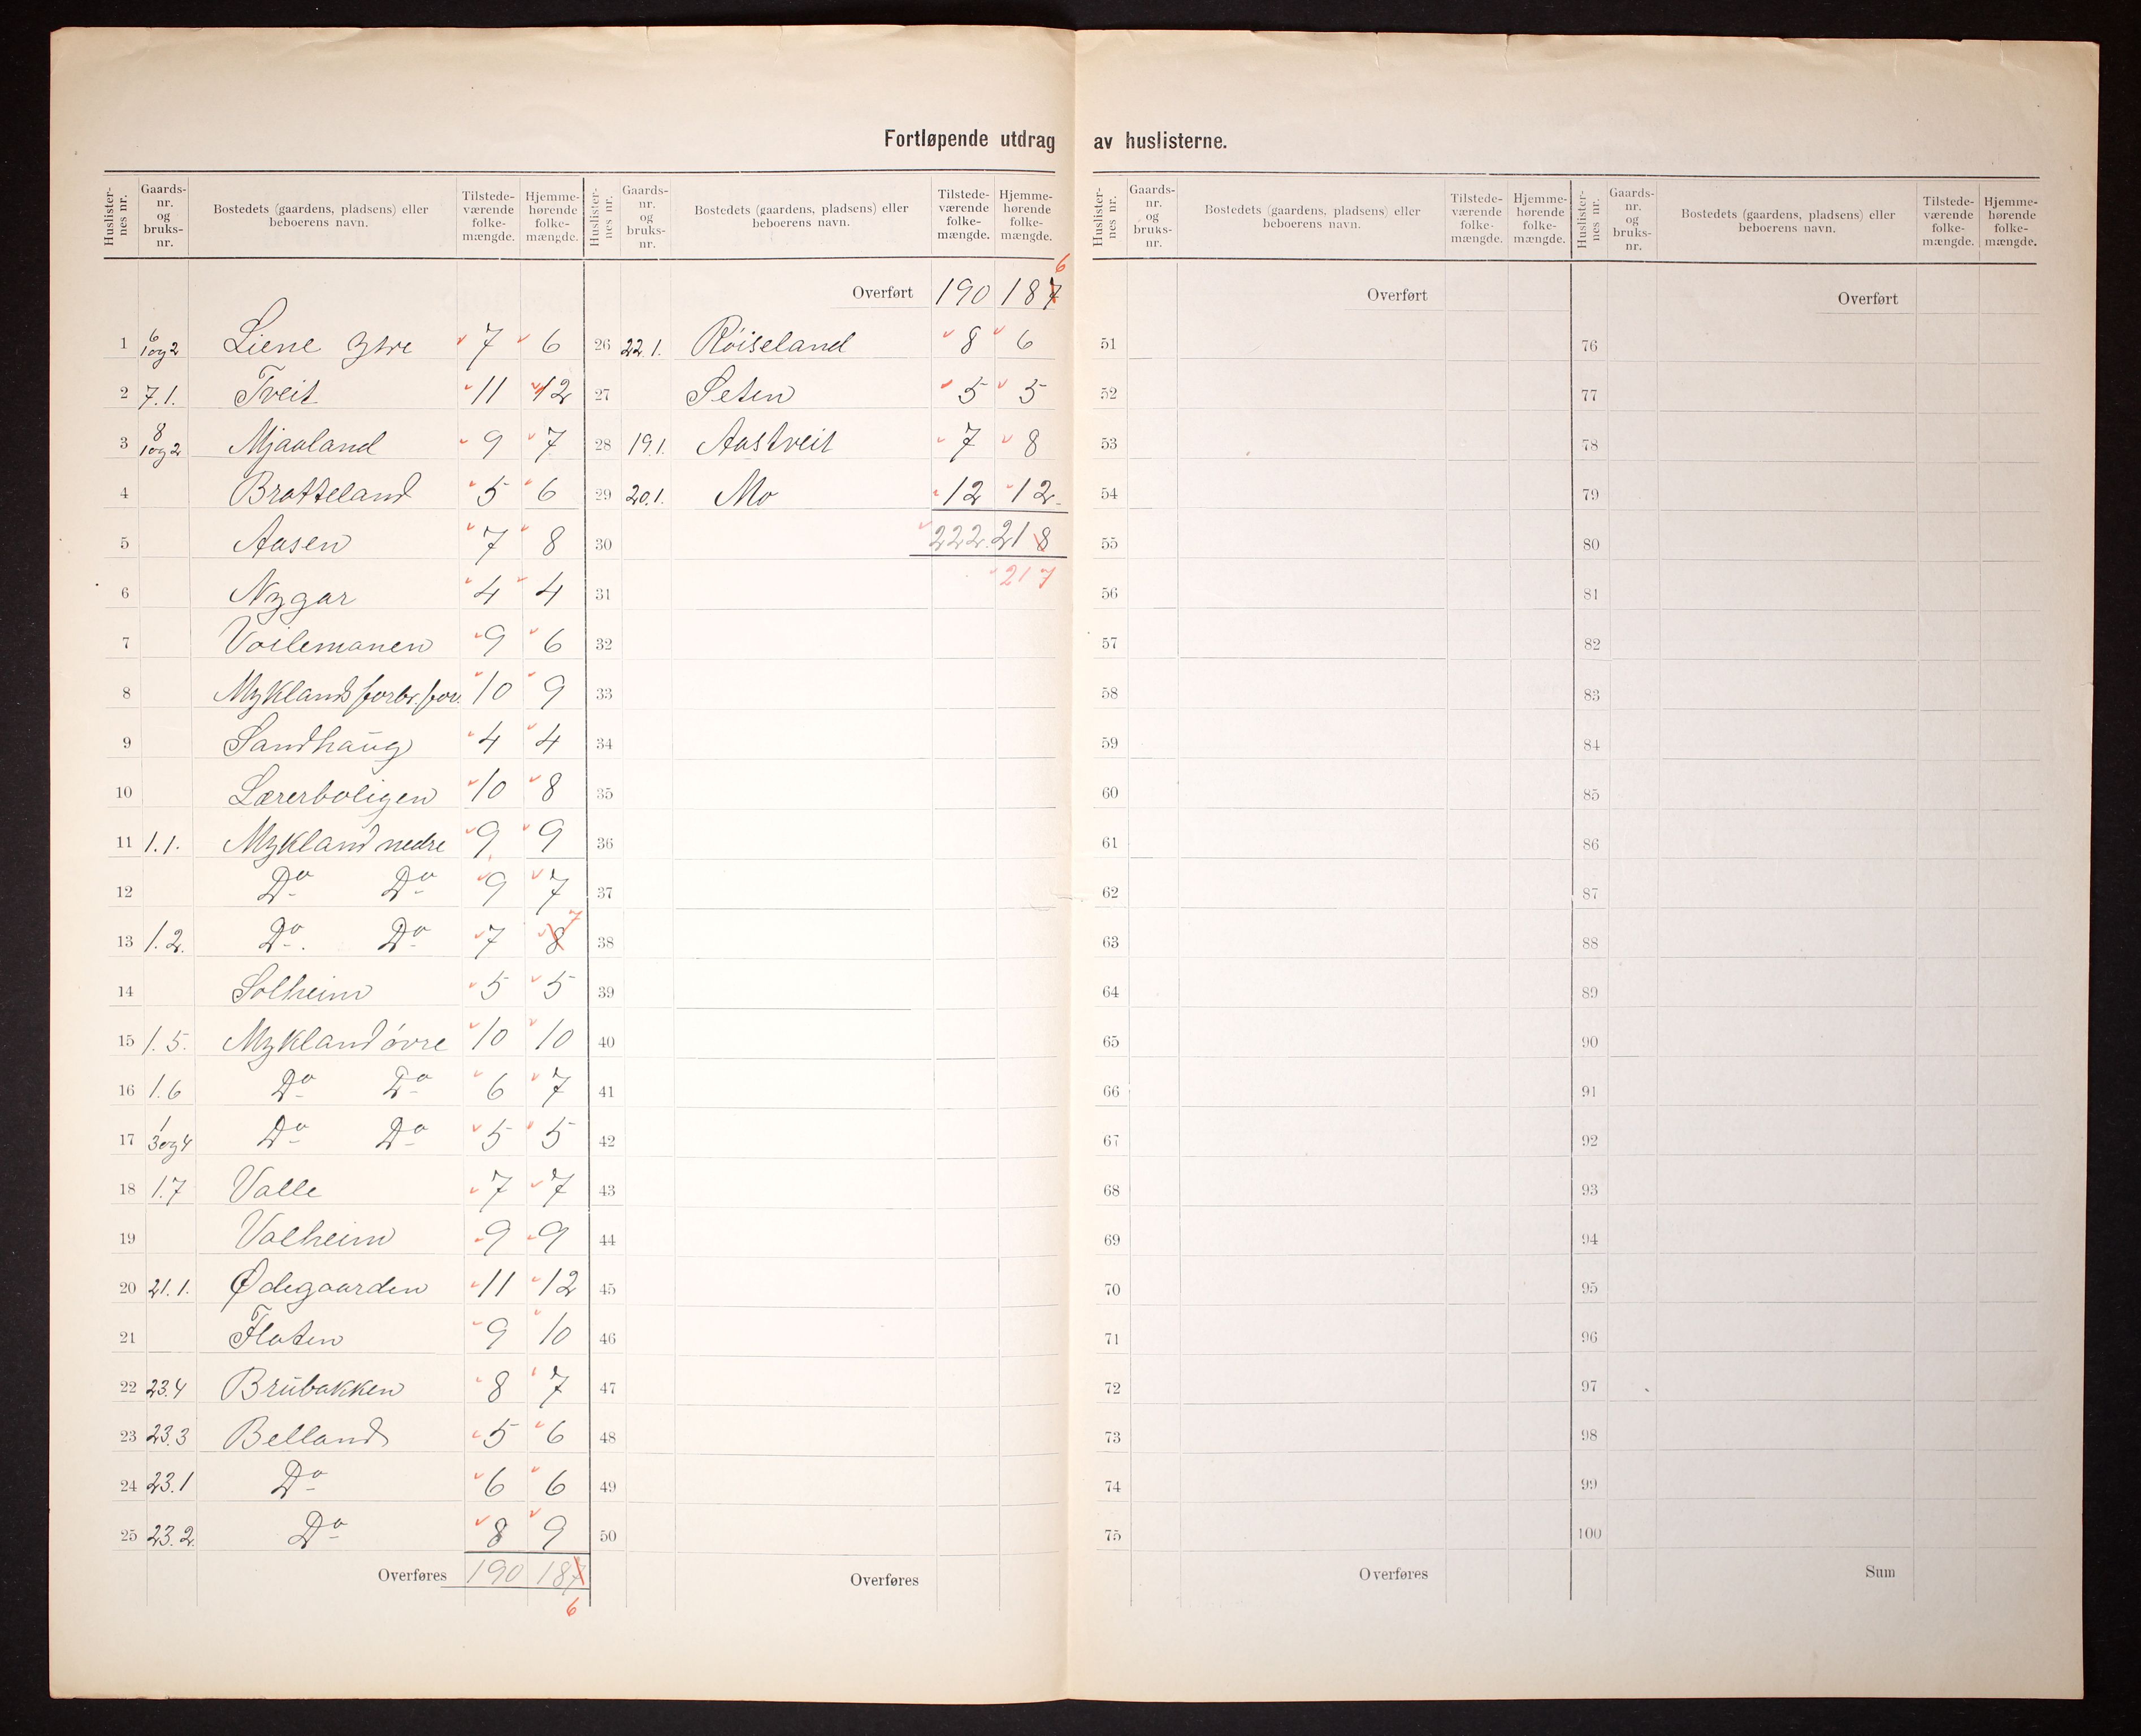 Fortløpende utdrag av huslisterne.
Huslister-nes nr. Gaards-nr. og bruks-nr. Bostedets (gaardens, pladsens) eller beboerens navn. Tilstede-værende folke-mængde. Hjemme-hørende folke-mængde.
1 6 1og2 Liene ytre 7 6
2 7.1. Tveit 11 12
3 8 1og2 Mjaaland 9 7
4 Bratteland 5 6
5 Aasen 7 8
6 Nygar 4 4
7 Voilemanen 9 6
8 Myklands forbr.for. 10 9
9 Sandhaug 4 4
10 Lærerboligen 10 8
11 1.1. Mykland nedre 9 9
12 Do Do 9 7
13 1.2. Do. Do 7 8 7
14 Solheim 5 5
15 1.5. Mykland øvre 10 10
16 1.6 Do Do 6 7
17 1 3og4 Do Do 5 5
18 1.7 Valle 7 7
19 Valheim 9 9
20 21.1. Ødegaarden 11 12
21 Flaten 9 10
22 23.4 Brubakken 8 7
23 23.3 Belland 5 6
24 23.1 Do 6 6
25 23.2. Do 8 9
Overføres 190 187
6
Huslister-nes nr. Gaards-nr. og bruks-nr. Bostedets (gaardens, pladsens) eller beboerens navn. Tilstede-værende folke-mængde. Hjemme-hørende folke-mængde.
6
Overført 190 187
26 22.1. Røiseland 8 6
27 Seten 5 5
28 19.1. Aastveit 7 8
29 20.1. Mo 12 12
30 222. 218
31 217
32
33
34
35
36
37
38
39
40
41
42
43
44
45
46
47
48
49
50
Overføres
Huslister-nes nr. Gaards-nr. og bruks-nr. Bostedets (gaardens, pladsens) eller beboerens navn. Tilstede-værende folke-mængde. Hjemme-hørende folke-mængde.
Overført
51
52
53
54
55
56
57
58
59
60
61
62
63
64
65
66
67
68
69
70
71
72
73
74
75
Overføres
Huslister-nes nr. Gaards-nr. og bruks-nr. Bostedets (gaardens, pladsens) eller beboerens navn. Tilstede-værende folke-mængde. Hjemme-hørende folke-mængde.
Overført
76
77
78
79
80
81
82
83
84
85
86
87
88
89
90
91
92
93
94
95
96
97
98
99
100
Sum